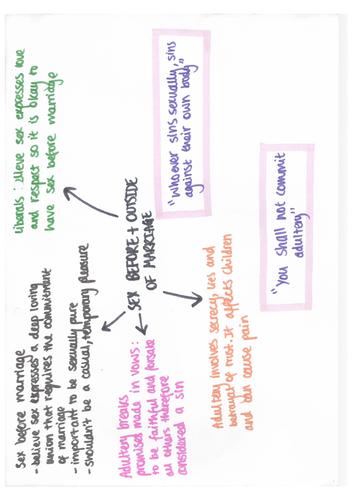 Sex before marriage
- believe sex expresses a deep loving
union that requires the commitment
of marriage
- important to be sexually pure
- shouldn't be a casual, temporary pleasure
Liberals: believe sex expresses love
and respect so it is okay to
have sex before marriage
SEX BEFORE + OUTSIDE
OF MARRIAGE
Adultery breaks
promises made in vows:
to be faithful and forsake
all others therefore
considered a sin
Adultery involves secrecy, lies and
betrayal of trust. It affects children
and can cause pain
"Whoever sins sexually, sins
against their own body"
"You shall not commit
adultery"